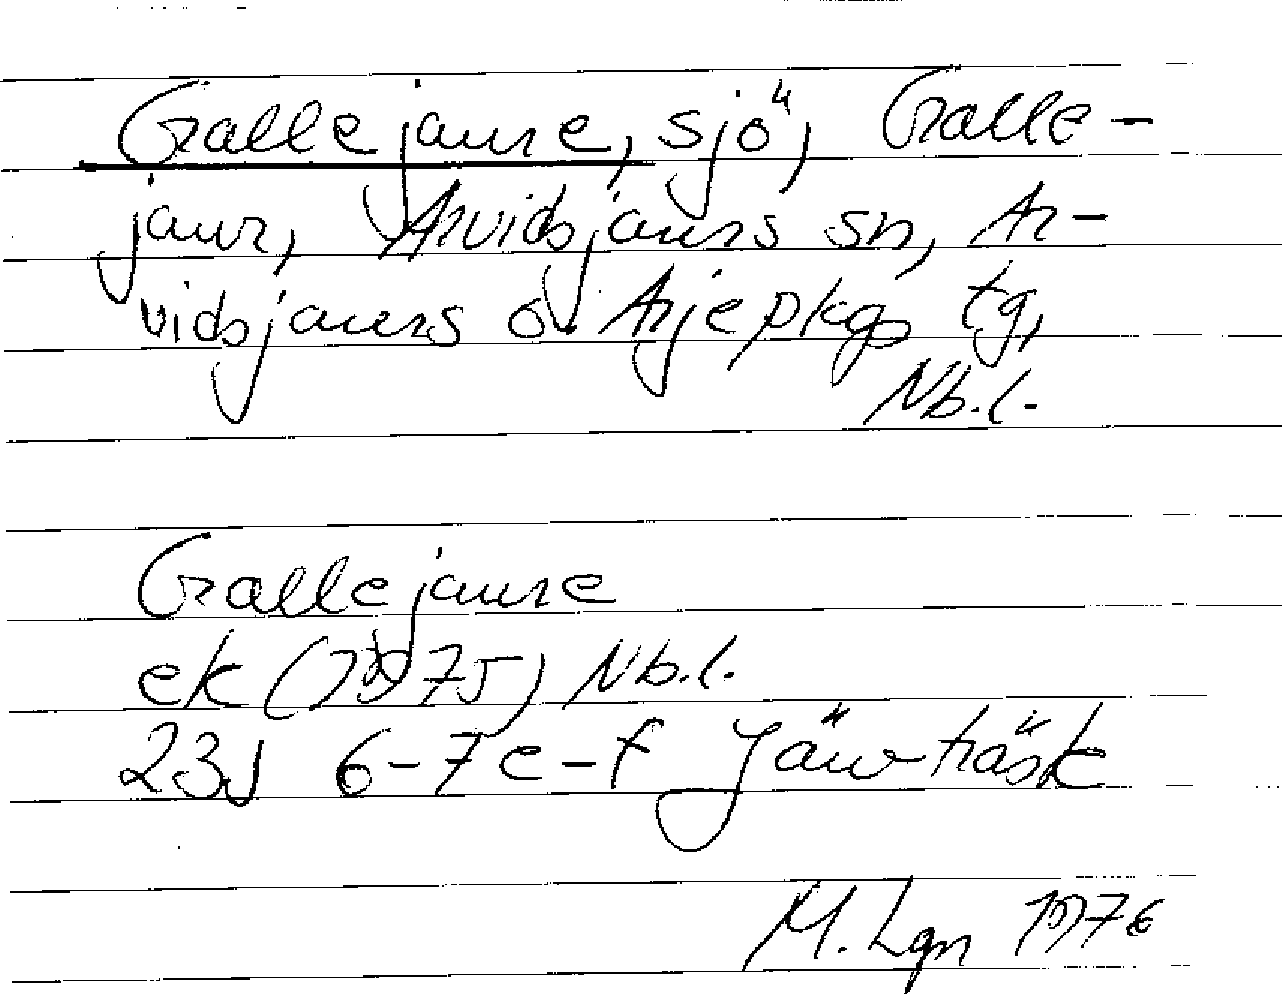 Gallejaure, sjö, Galle-
jaur, Arvidsjaurs sn, Ar-
vidsjaurs o. Arjeplogs tg,
Nb.l.
Gallejaure
ek (1975) Nb.l.
23J 6-7e-f Jävrträsk
M. Lgn 1976